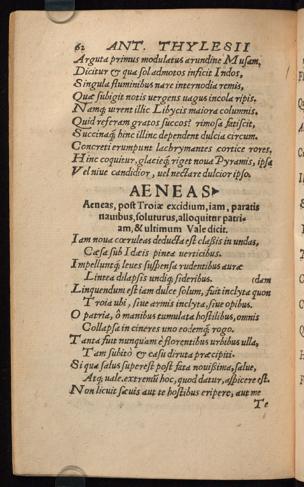 62 ANT. THYLESII
Arguta primus modulatus arundine Musam,
Dicitur & qua sol admotos inficit Indos,
Singula fluminibus nare internodia remis,
Quæ subigit notis vergens uagus incola ripis.
Namq; urent illic Libycis maiora columnis,
Quid referam gratos succos? rimosa fatiscit,
Succinaq; hinc illinc dependent dulcia circum.
Concreti erumpunt lachrymantes cortice rores,
Hinc coquitur, glacieq; riget noua Pyramis, ipsa
Vel niue candidior, uel nectare dulcior ipso.
AENEAS
Aeneas, post Troiæ excidium, iam, paratis
nauibus, soluturus, alloquitur patri-
am, & ultimum Vale dicit.
Iam noua cœruleas deducta est classis in undas,
Cæsa sub Idæis pinea uerticibus.
Impelluntq; leues suspensa rudentibus auræ
Lintea dilapsis undiq; sideribus. (dam
Linquendum est iam dulce solum, fuit inclyta quon
Troia ubi, siue armis inclyta, siue opibus.
O patria, ô manibus tumulata hostilibus, omnis
Collapsa in cineres uno eodemq; rogo.
Tanta fuit nunquam è florentibus urbibus ulla,
Tam subitò & casu diruta præcipiti.
Si qua salus superest post fata nouissima, salue,
Atq; uale. extremū hoc, quod datur, aspicere est.
Non licuit sæuis aut te hostibus eripere, aut me
Te